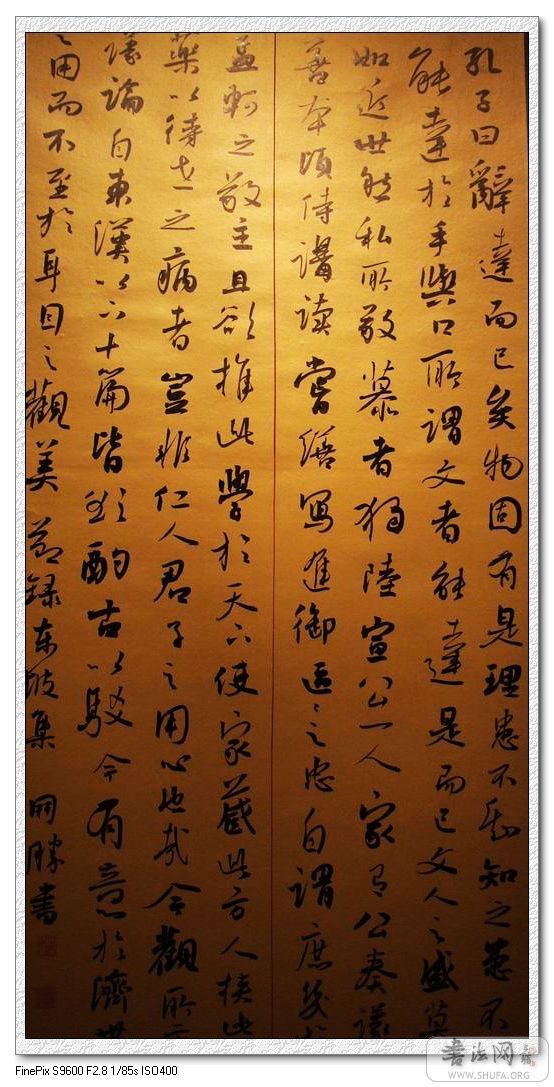 孔子曰辭達而已矣物固有是理患不知之患不
能達於手與口所謂文者能達是而已文人之盛莫
如近世然私所敬慕者獨陸宣公一人家有公奏議
善本頃侍講读嘗繕写進御區々之忠自謂庶幾
孟軻之敬主且欲推此學於天下使家藏此方人挾此
藥以待世之病者豈非仁人君子之用心也哉今觀所
議論自東漢以下十篇皆欲酌古以馭今有意於濟世
之用而不至於耳目之觀美 節録东坡集 同勝書
書法网
WWW.SHUFA.ORG
FinePix S9600 F2.8 1/85s ISO400